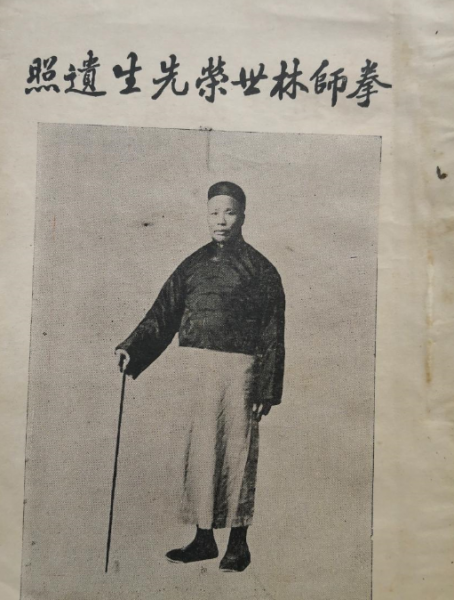 拳師林世榮先生遺照